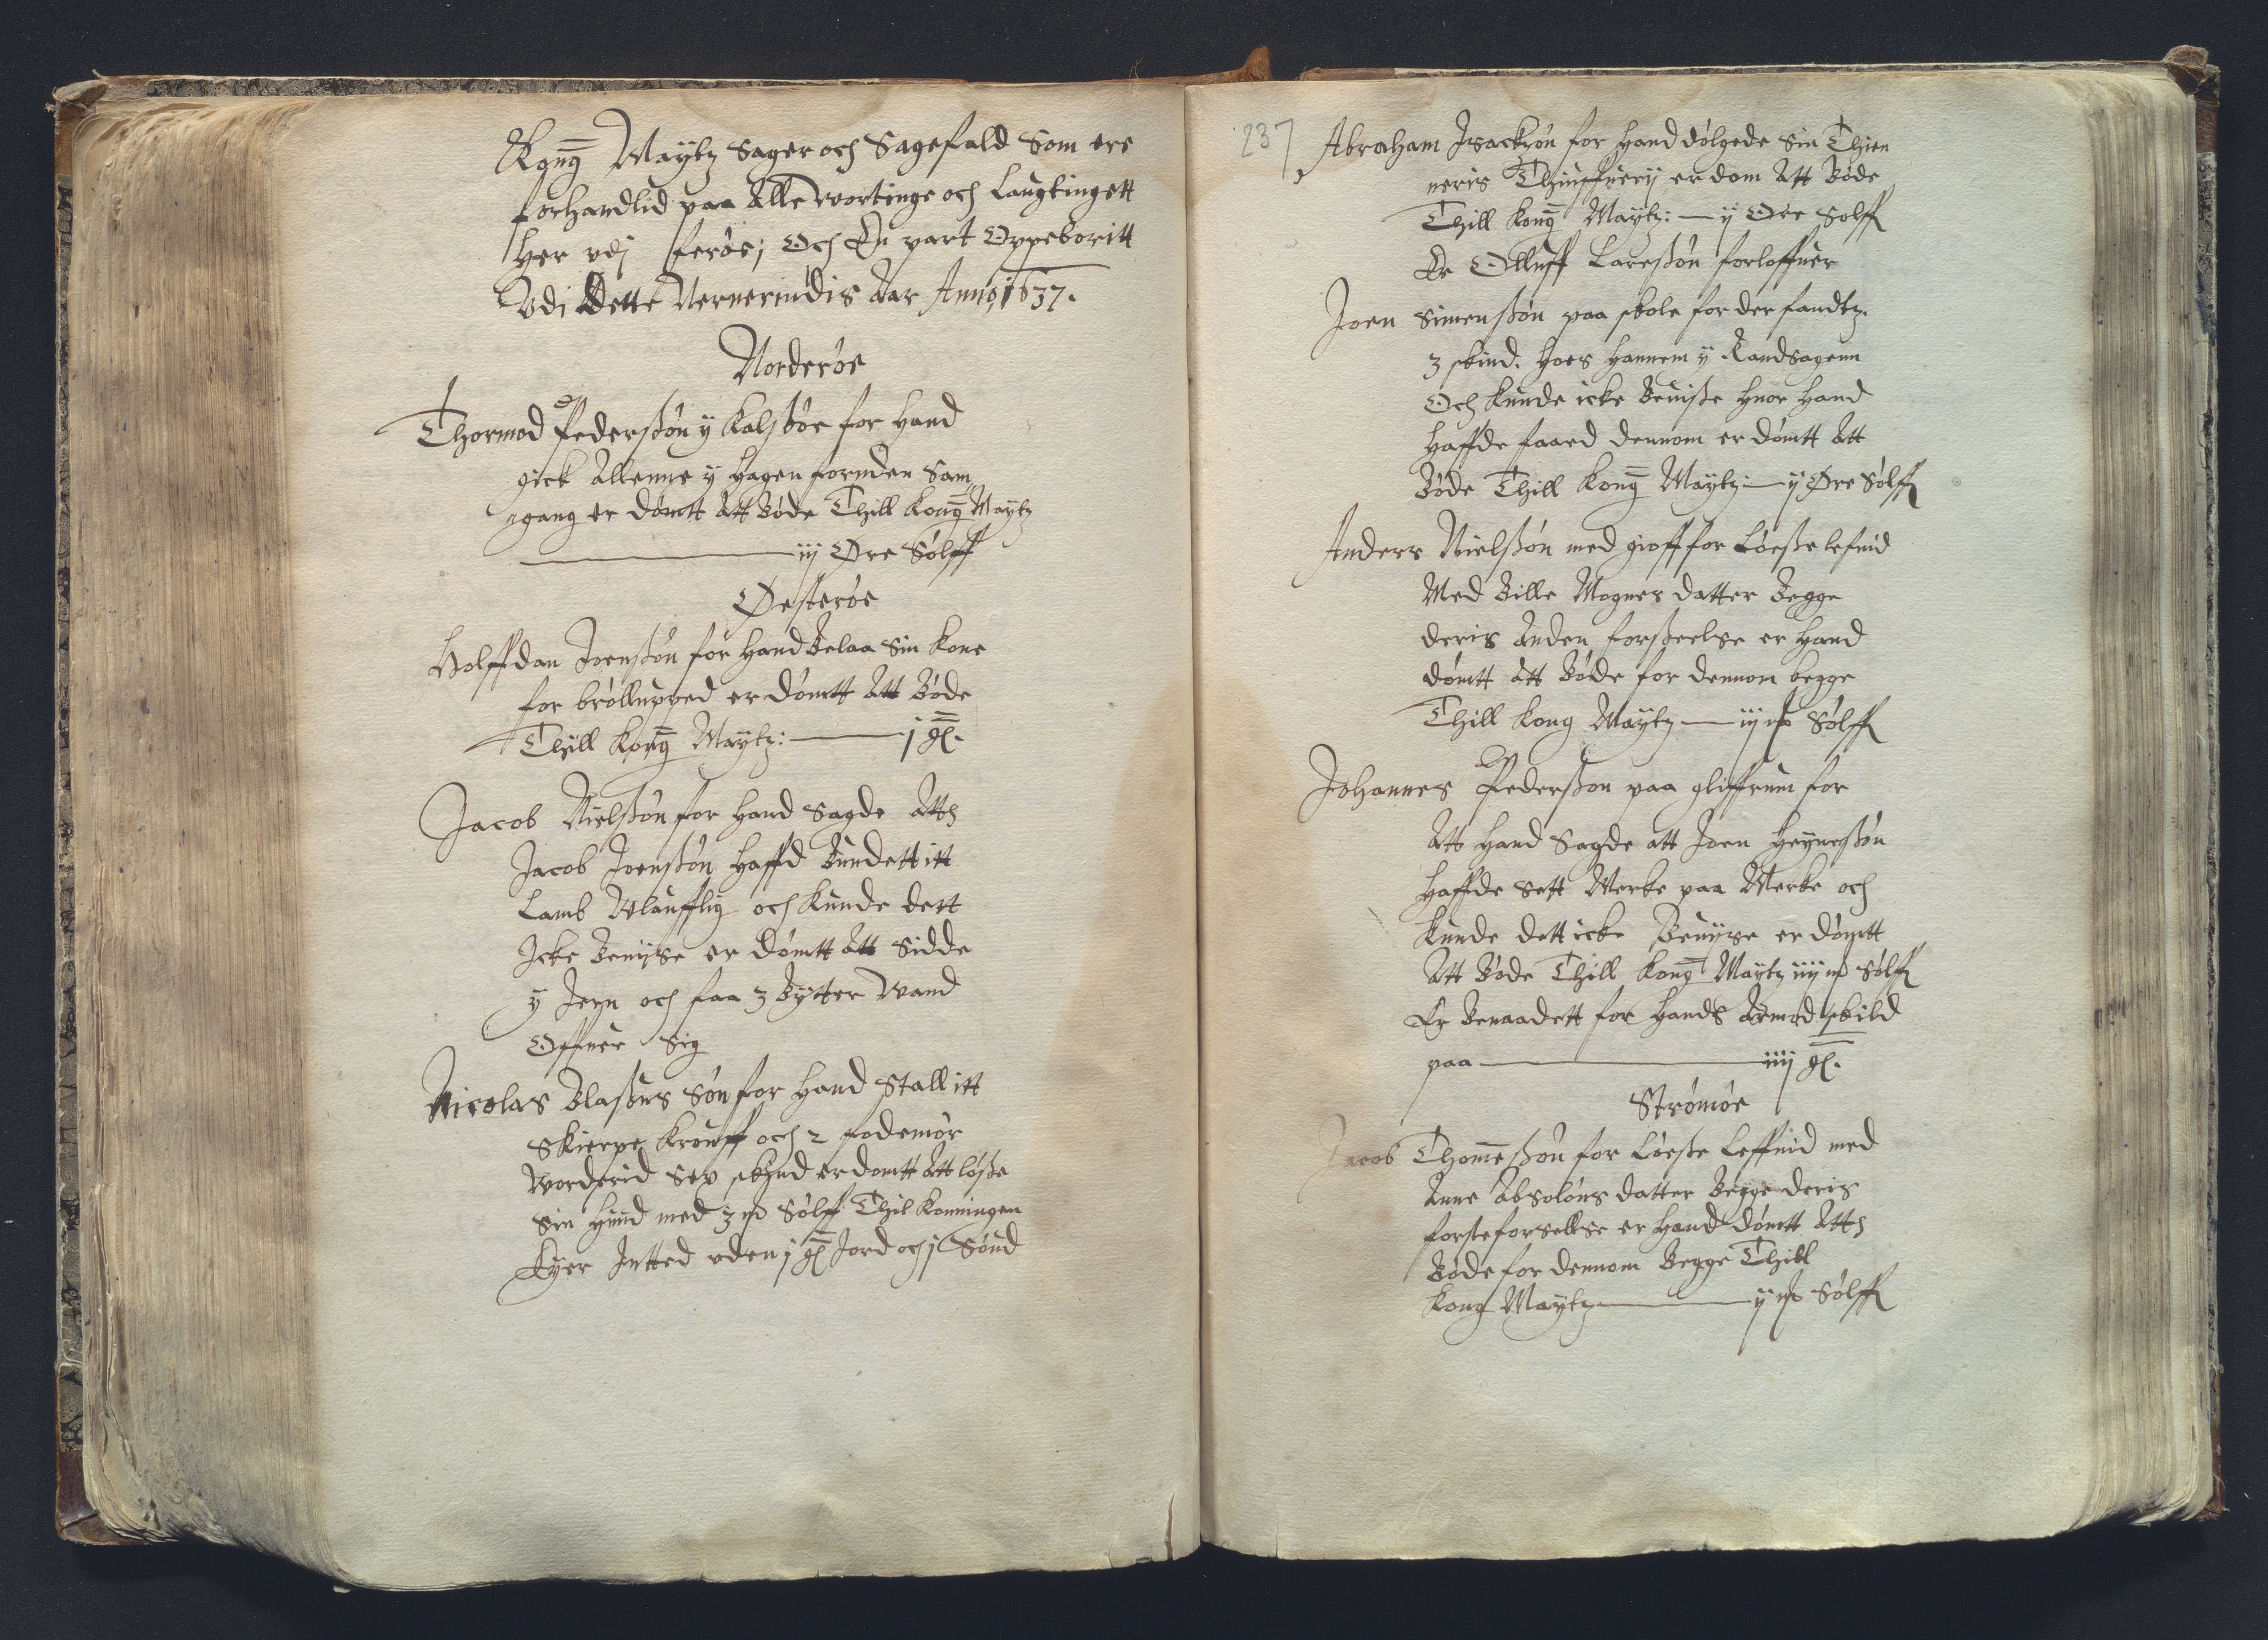 Kong Maÿtz Sager och Sagefald Som ere
forhandlid paa Alle wortinge och Laugtingett
Her vdj feröe; Och En part Oppeboritt
Vdi Dette Nerverindis Aar Anno 1637.
Norderöe
Thormod Pederßön ÿ Kalßöe for Hand
gick Allenne ÿ Hagen foruden Sam
gang er dömtt Att Böde Thill Kong Maÿtz
iij Öre Sölff
Øesteröe
Holffdan Joenßön for Hand Belaa Sin Kone
for bröllupped er dömtt Att Böde
Thill Kong Maÿtz: j gl.
Jacob Nielßön for Hand Sagde Att
Jacob Joenßön Haffd Bundett itt
Lamb Vlaufflig och Kunde dett
Icke Beuÿse er dömtt Att Sidde
ÿ Jern och faa 3 Bÿtter Vand
Offuer Sig
Nicolas Blaßius Sön for Hand Stall itt
Skierpe Krouff och 2 födemör
worderid Sex skind er domtt Att löße
Sin Hud med 3 m Sölff Thil Konningen
Eÿer Intted vden j gl Jord och j Söud
237
Abraham Isacksön for Hand dölgede Sin Thien
neris Thiuffuerij er dom Att Böde
Thill Kong Maÿtz: ij Öre Sölff
Er Olluff Lareßön forloffuer
Joen Simenßön paa skole for der fandtz
3 skind. Hoes Hannem ÿ Randsagenn
Och Kunde icke Beuiße Huor Hand
Haffde faard dennom er dömtt Att
Böde Thill Kong Maÿtz: ij Öre Sölff
Anders Nielßön med gioff for Löeße lefnid
Med Bille Mognes datter Begge
deris Anden forßeelse er Hand
dömtt Att Böde for dennom begge
Thill Kong Maÿtz iij m Sölff
Johannes Pederßon paa gliffrum for
Att Hand Sagde att Joen Heÿneßön
Haffde Sett Merke paa Merke och
Kunde dett icke Beuÿse er dömtt
Att Böde Thill Kong Maÿtz iiij m Sölff
Er Benaadett for Hands Armod skild
paa iiij gl.
Strömöe
Jacob Thomeßön for Löeße Leffnid med
Anne Absolöns datter Begge deris
forste forseelse er Hand dömtt Att
Böde for dennom Begge Thill
Kong Maÿtz ij m Sölff